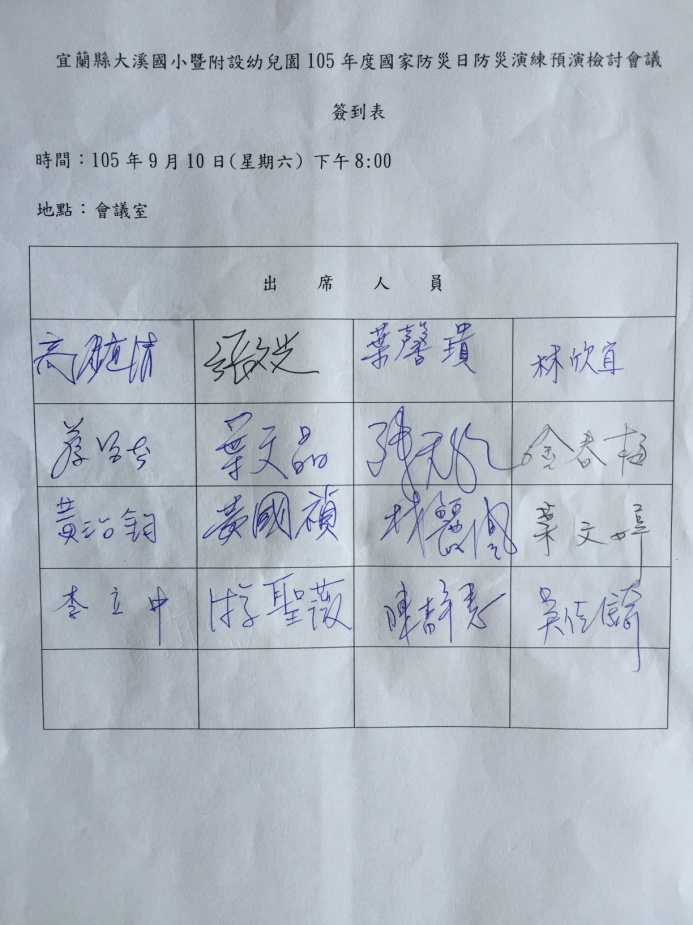 宜蘭縣大溪國小暨附設幼兒園105年度國家防災日防災演練預演檢討會議
簽到表
時間：105年9月10日(星期六) 下午8:00
地點：會議室
出 席 人 員
葉馨璝 林欣宜
葉文晶 金春梅
黃治鈞 黃國禎 林麗佩 葉文婷
李立中 游聖薇